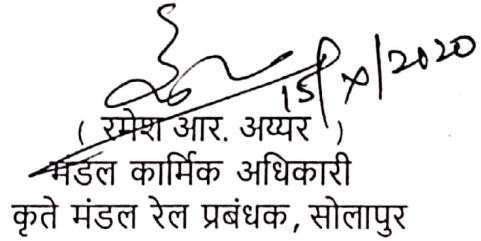 15/x/2020
( रमेश आर. अय्यर )
मंडल कार्मिक अधिकारी
कृते मंडल रेल प्रबंधक, सोलापुर